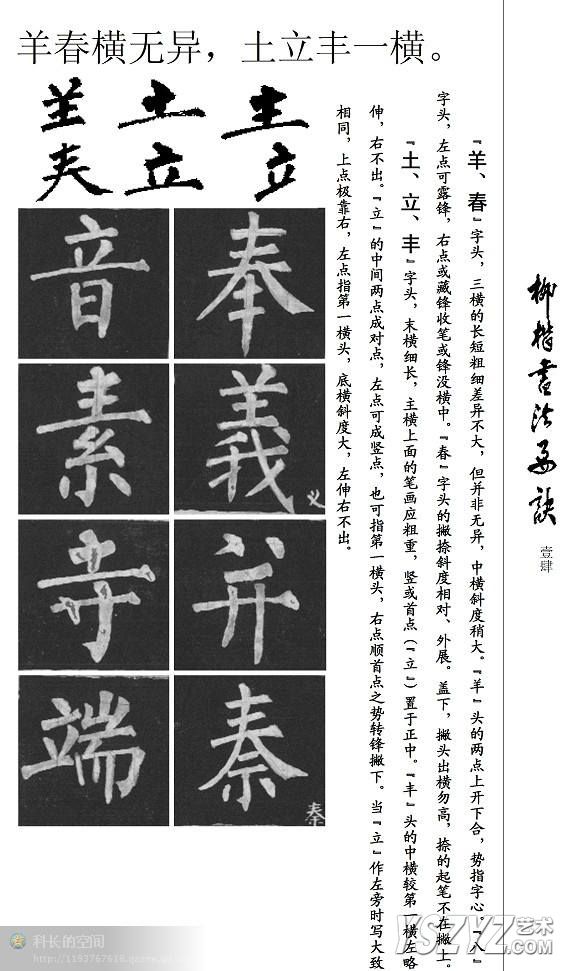 羊春横无异，土立丰一横。
柳楷書法要诀
壹肆
『羊、春』字头，三横的长短粗细差异不大，但并非无异，中横斜度稍大。『羊』头的两点上开下合，势指字心。『八』
字头，左点可露锋，右点或藏锋收笔或锋没横中。『春』字头的撇捺斜度相对、外展。盖下，撇头出横勿高，捺的起笔不在撇上。
『土、立、丰』字头，末横细长，主横上面的笔画应粗重，竖或首点（『立』）置于正中。『丰』头的中横较第一横左略
伸，右不出。『立』的中间两点成对点，左点可成竖点，也可指第一横头，右点顺首点之势转锋撇下。当『立』作左旁时写大致
相同，上点极靠右，左点指第一横头，底横斜度大，左伸右不出。
土
立 立
音 奉
素 義 义
寺 并
端 秦 秦
科长的空间
http://1193767616.qzone.qq.com
YSZYZ 艺术
.com